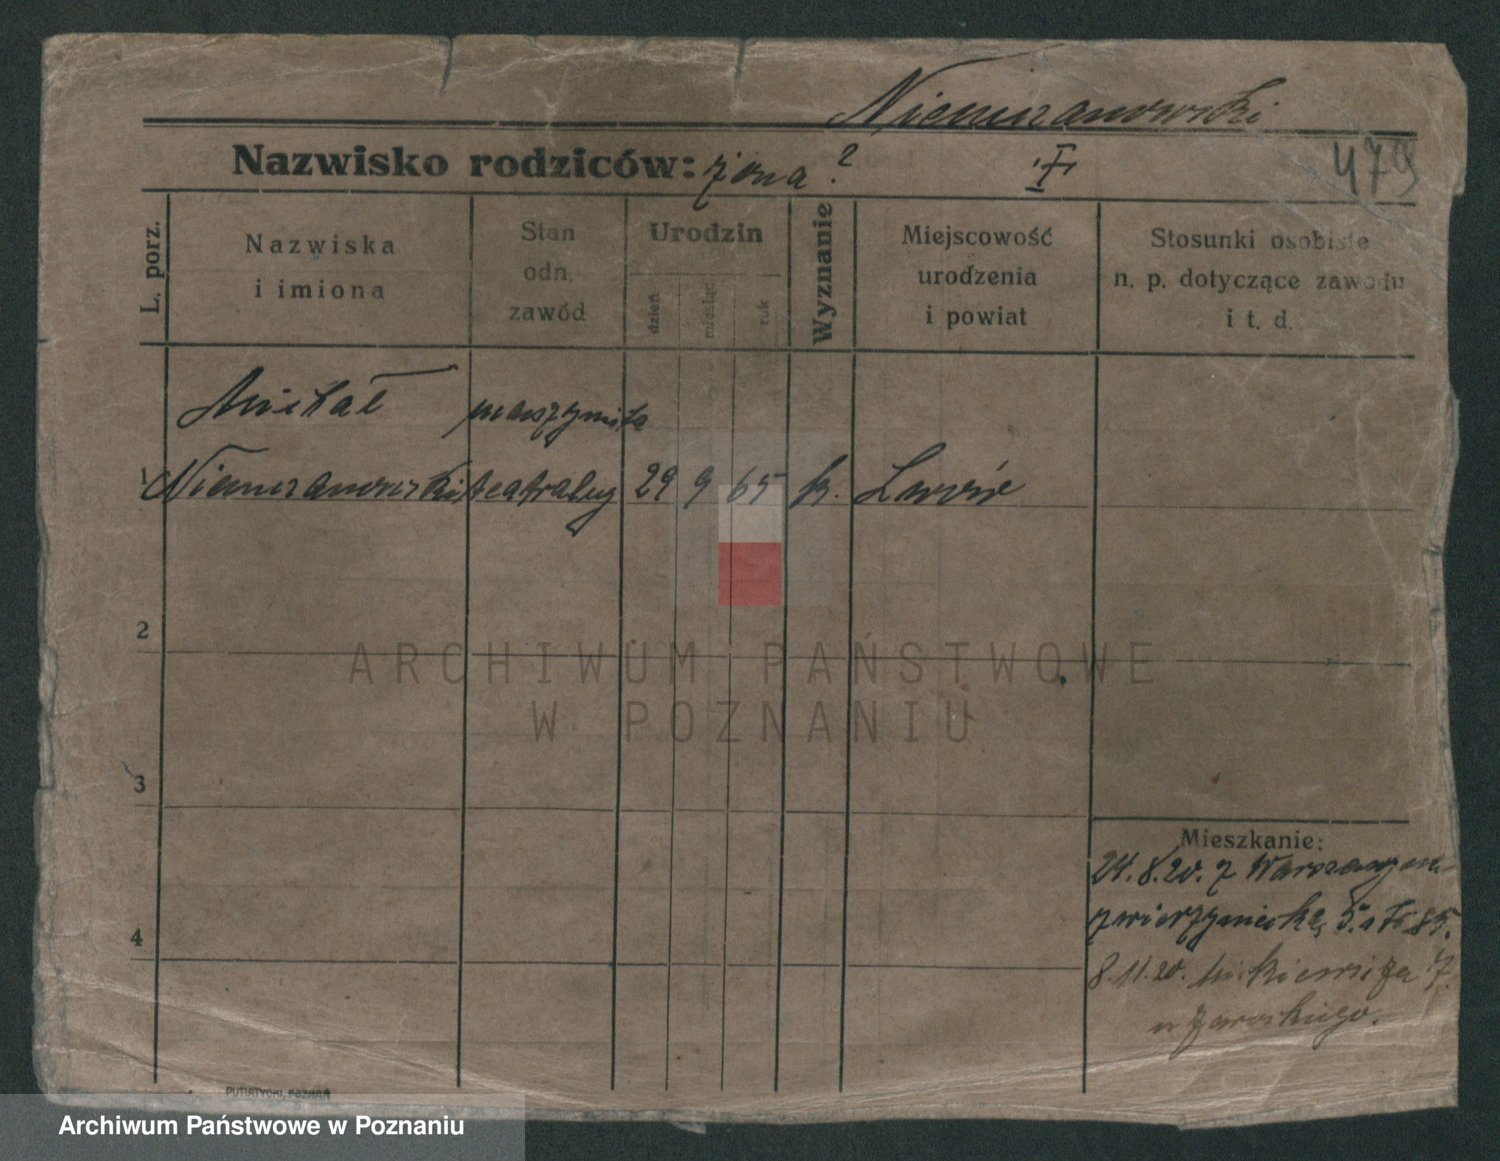 Niemczanowski
Nazwisko rodziców: żona ?
479
L. porz.
Nazwiska
i imiona
Stan
odn.
zawód
Urodzin
dzień
miesiąc
rok
Wyznanie
Miejscowość
urodzenia
i powiat
Stosunki osobiste
n. p. dotyczące zawodu
i t. d.
Michał maszynista
1 Niemczanowski teatralny 29 9 65 k. Lwów
2
3
4
Mieszkanie:
24.8.20. z Warszawy na
Zwierzyniecką
8.11.20. Mickiewicza 7.
u Jaroskiego.
PUTIATYCKI, POZNAŃ
ARCHIWUM PAŃSTWOWE
W POZNANIU
Archiwum Państwowe w Poznaniu